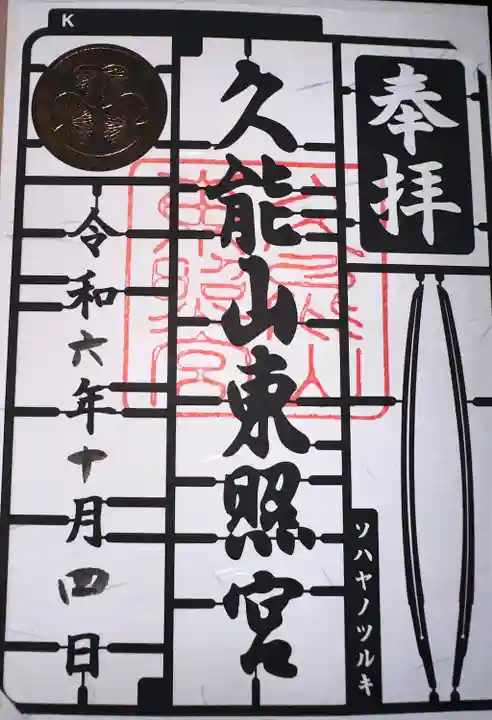 K
奉拝
ソハヤノツルキ
久能山東照宮
久能山
東照宮
令和六年十月四日